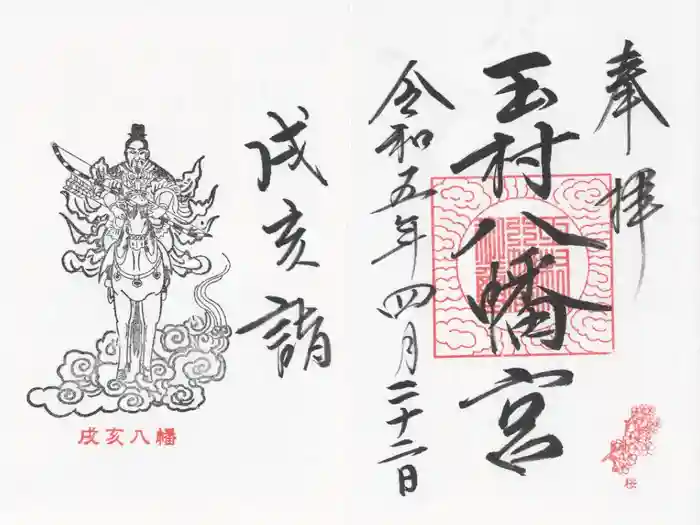 奉拝
玉村八幡宮
令和五年四月二十二日
戌亥詣
戌亥八幡
桜